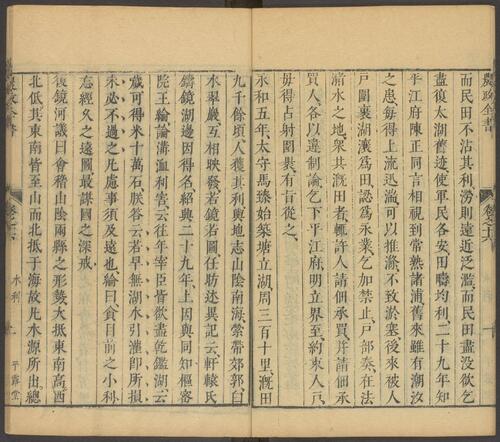 農政全書
卷之十六
而民田不沾其利澇則遠近泛濫而民田盡沒欲乞
盡復太湖舊迹使軍民各安田疇均利二十九年知
平江府陳正同言相視到常熟諸浦舊來雖有潮汐
之患每得上流迅湍可以推滌不致淤塞後來被人
戶圍裹湖瀼爲田認爲永業乞加禁止戶部奏在法
瀦水之地衆共漑田者輒許人請佃承買并請佃承
買人各以違制論乞下平江府明立界至約束人戶
毋得占射圍裹有旨從之
永和五年太守馬臻始築塘立湖周三百十里漑田
九千餘頃人獲其利輿地志山陰南湖縈帶郊郭白
水翠巖互相映發若鏡若圖任昉述異記云軒轅氏
鑄鏡湖邊因得名紹興二十九年上因與同知樞密
院王綸論溝洫利害云往年宰臣皆欲盡乾鑑湖云
歲可得米十萬石朕答云若旱無湖水引灌卽所損
未必不過之凡處事須及遠也綸曰貪目前之小利
忘經久之遠圖最謀國之深戒
復鏡河議曰會稽山陰兩縣之形勢大抵東南高西
北低其東南皆至山而北抵于海故凡水源所出總
農政全書
卷之十六
水利
十一
平露堂